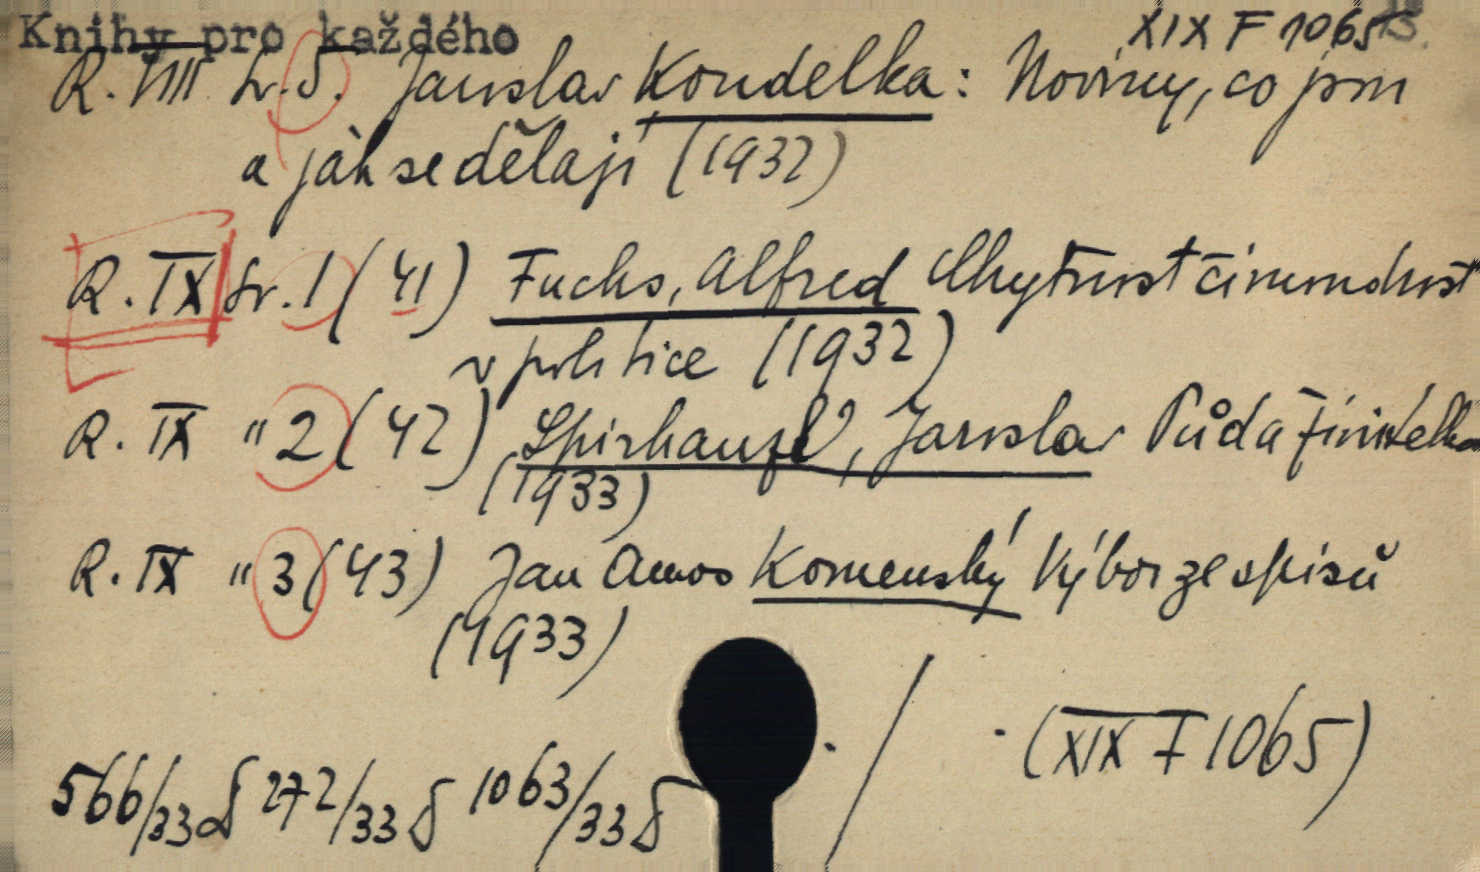 Knihy pro každého XIX F 1065
R. VIII sv. 5. Jaroslav Koudelka: Noviny, co jsou
a jak se dělají (1932)
R. IX sv. 1 (41) Fuchs, Alfred Chytrost či moudrost
v politice (1932)
R. IX " 2 (42) Jaroslav Půda živitelka
(1933)
R. IX " 3 (43) Jan Amos Komenský Výbor ze spisů
(1933)
(XIX F 1065)
566/33 272/33 1063/33